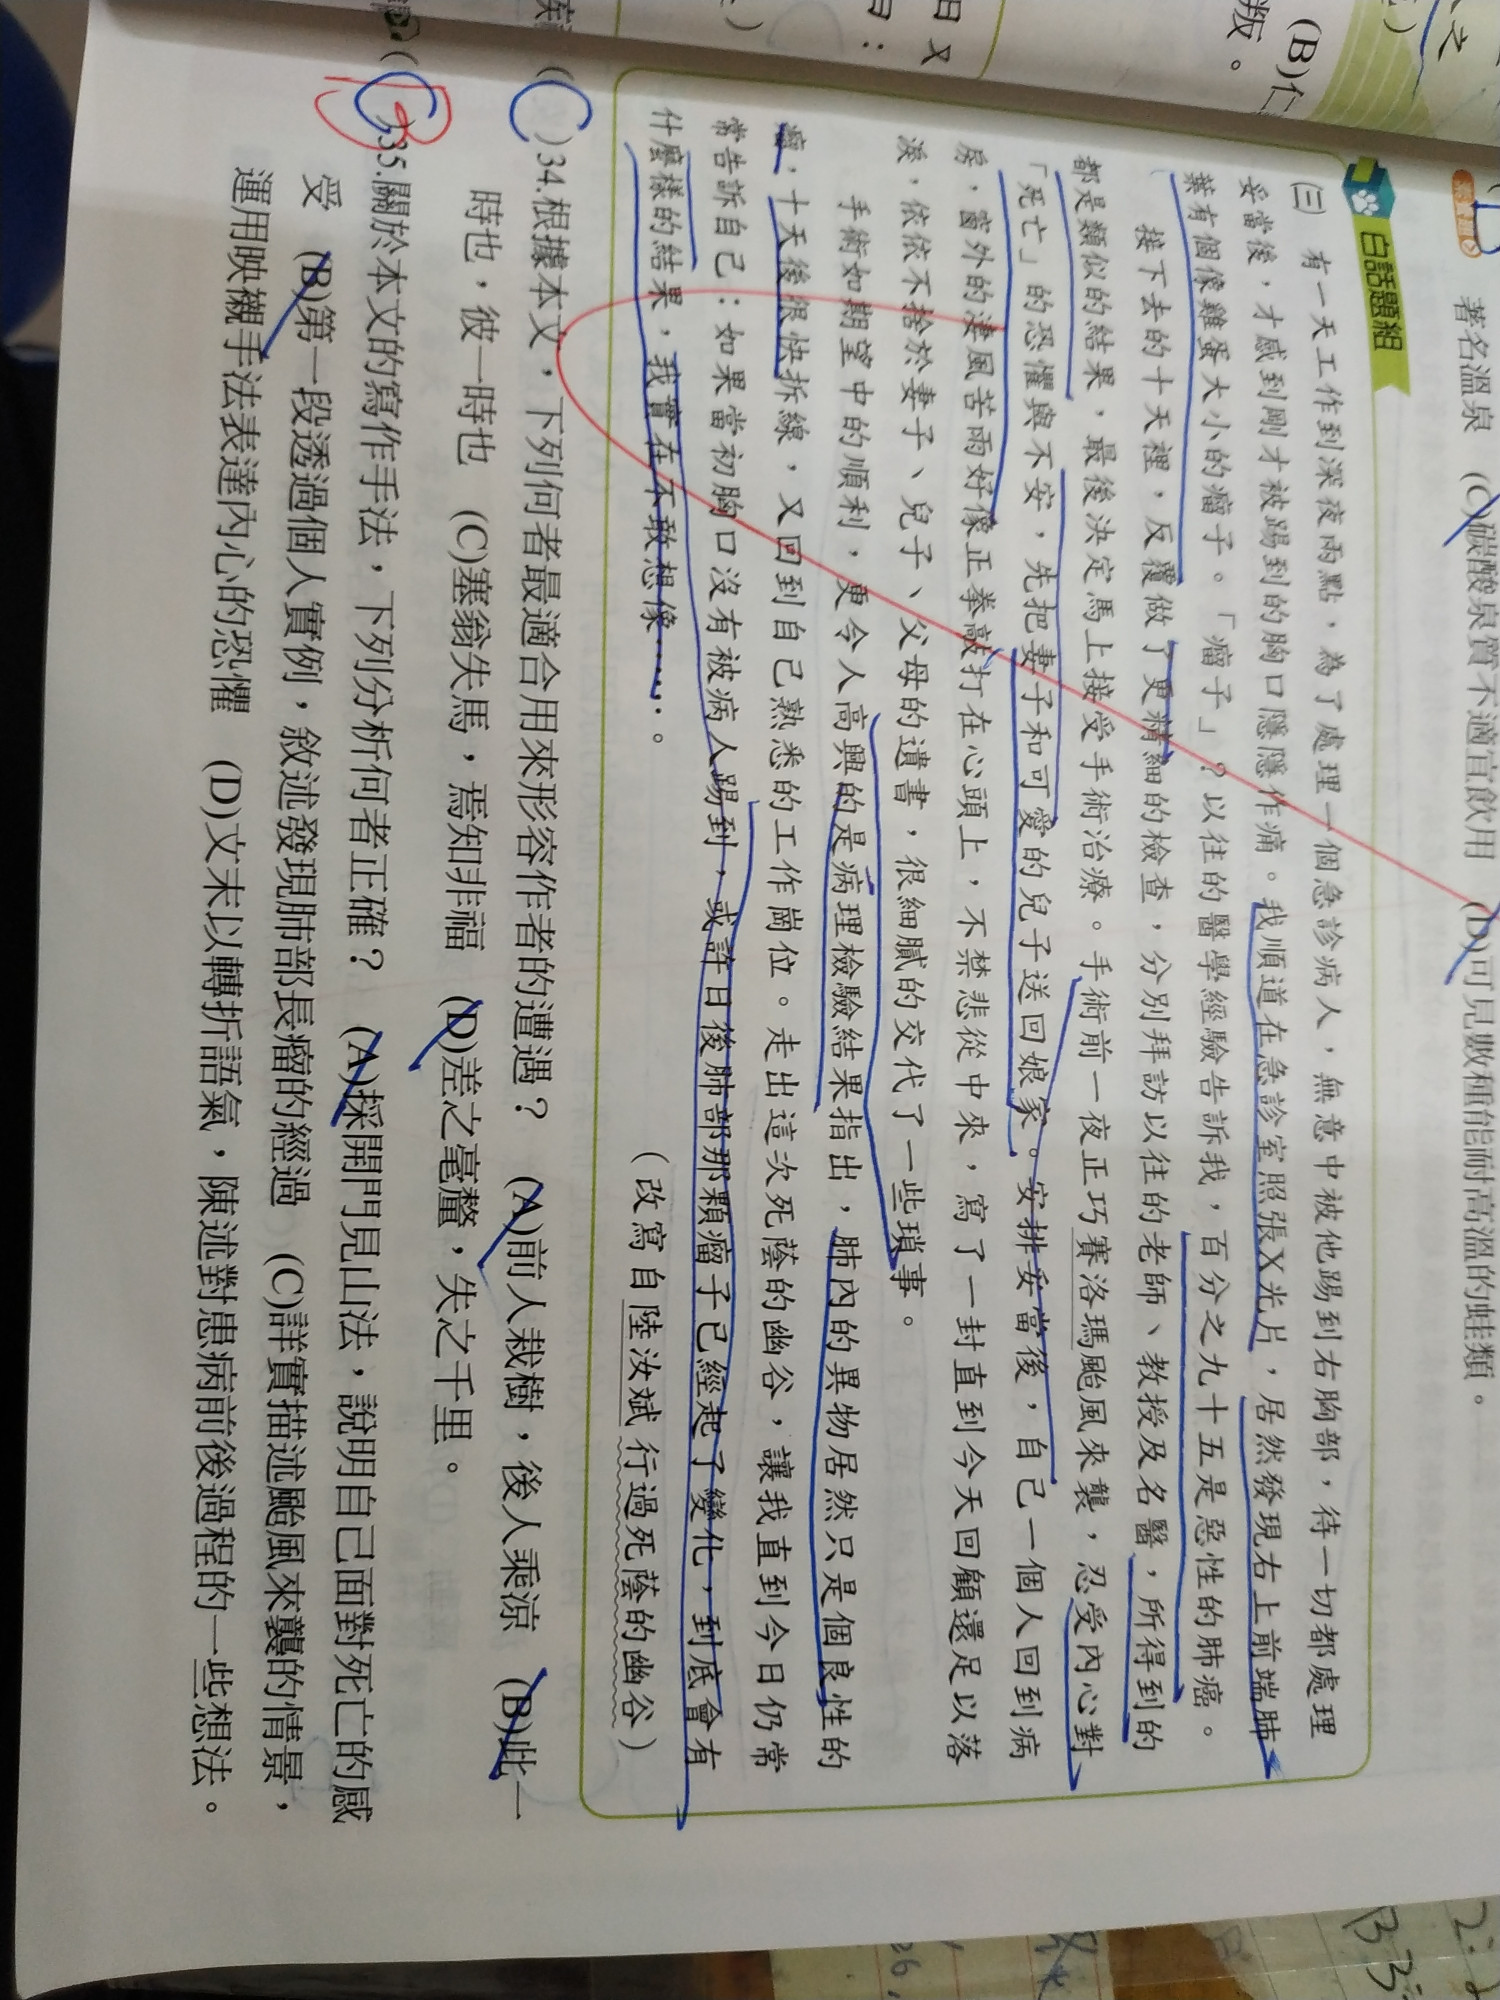 (B)仁
叛。
日又
日：
著名溫泉　(C)碳酸泉質不適宜飲用　(D)可見數種能耐高溫的蛙類。
白話題組
㈢　有一天工作到深夜兩點，為了處理一個急診病人，無意中被他踢到右胸部，待一切都處理
妥當後，才感到剛才被踢到的胸口隱隱作痛。我順道在急診室照張X光片，居然發現右上前端肺
葉有個像雞蛋大小的瘤子。「瘤子」？以往的醫學經驗告訴我，百分之九十五是惡性的肺癌。
接下去的十天裡，反覆做了更精細的檢查，分別拜訪以往的老師、教授及名醫，所得到的
都是類似的結果，最後決定馬上接受手術治療。手術前一夜正巧賽洛瑪颱風來襲，忍受內心對
「死亡」的恐懼與不安，先把妻子和可愛的兒子送回娘家。安排妥當後，自己一個人回到病
房，窗外的淒風苦雨好像正拳敲打在心頭上，不禁悲從中來，寫了一封直到今天回顧還足以落
淚，依依不捨於妻子、兒子、父母的遺書，很細膩的交代了一些瑣事。
手術如期望中的順利，更令人高興的是病理檢驗結果指出，肺內的異物居然只是個良性的
瘤，十天後很快拆線，又回到自己熟悉的工作崗位。走出這次死蔭的幽谷，讓我直到今日仍常
常告訴自己：如果當初胸口沒有被病人踢到，或許日後肺部那顆瘤子已經起了變化，到底會有
什麼樣的結果，我實在不敢想像……。
（改寫自陸汝斌 行過死蔭的幽谷）
(C)34.根據本文，下列何者最適合用來形容作者的遭遇？　(A)前人栽樹，後人乘涼　(B)此一
時也，彼一時也　(C)塞翁失馬，焉知非福　(D)差之毫釐，失之千里。
(C)35.關於本文的寫作手法，下列分析何者正確？　(A)採開門見山法，說明自己面對死亡的感
受　(B)第一段透過個人實例，敘述發現肺部長瘤的經過　(C)詳實描述颱風來襲的情景，
運用映襯手法表達內心的恐懼　(D)文末以轉折語氣，陳述對患病前後過程的一些想法。